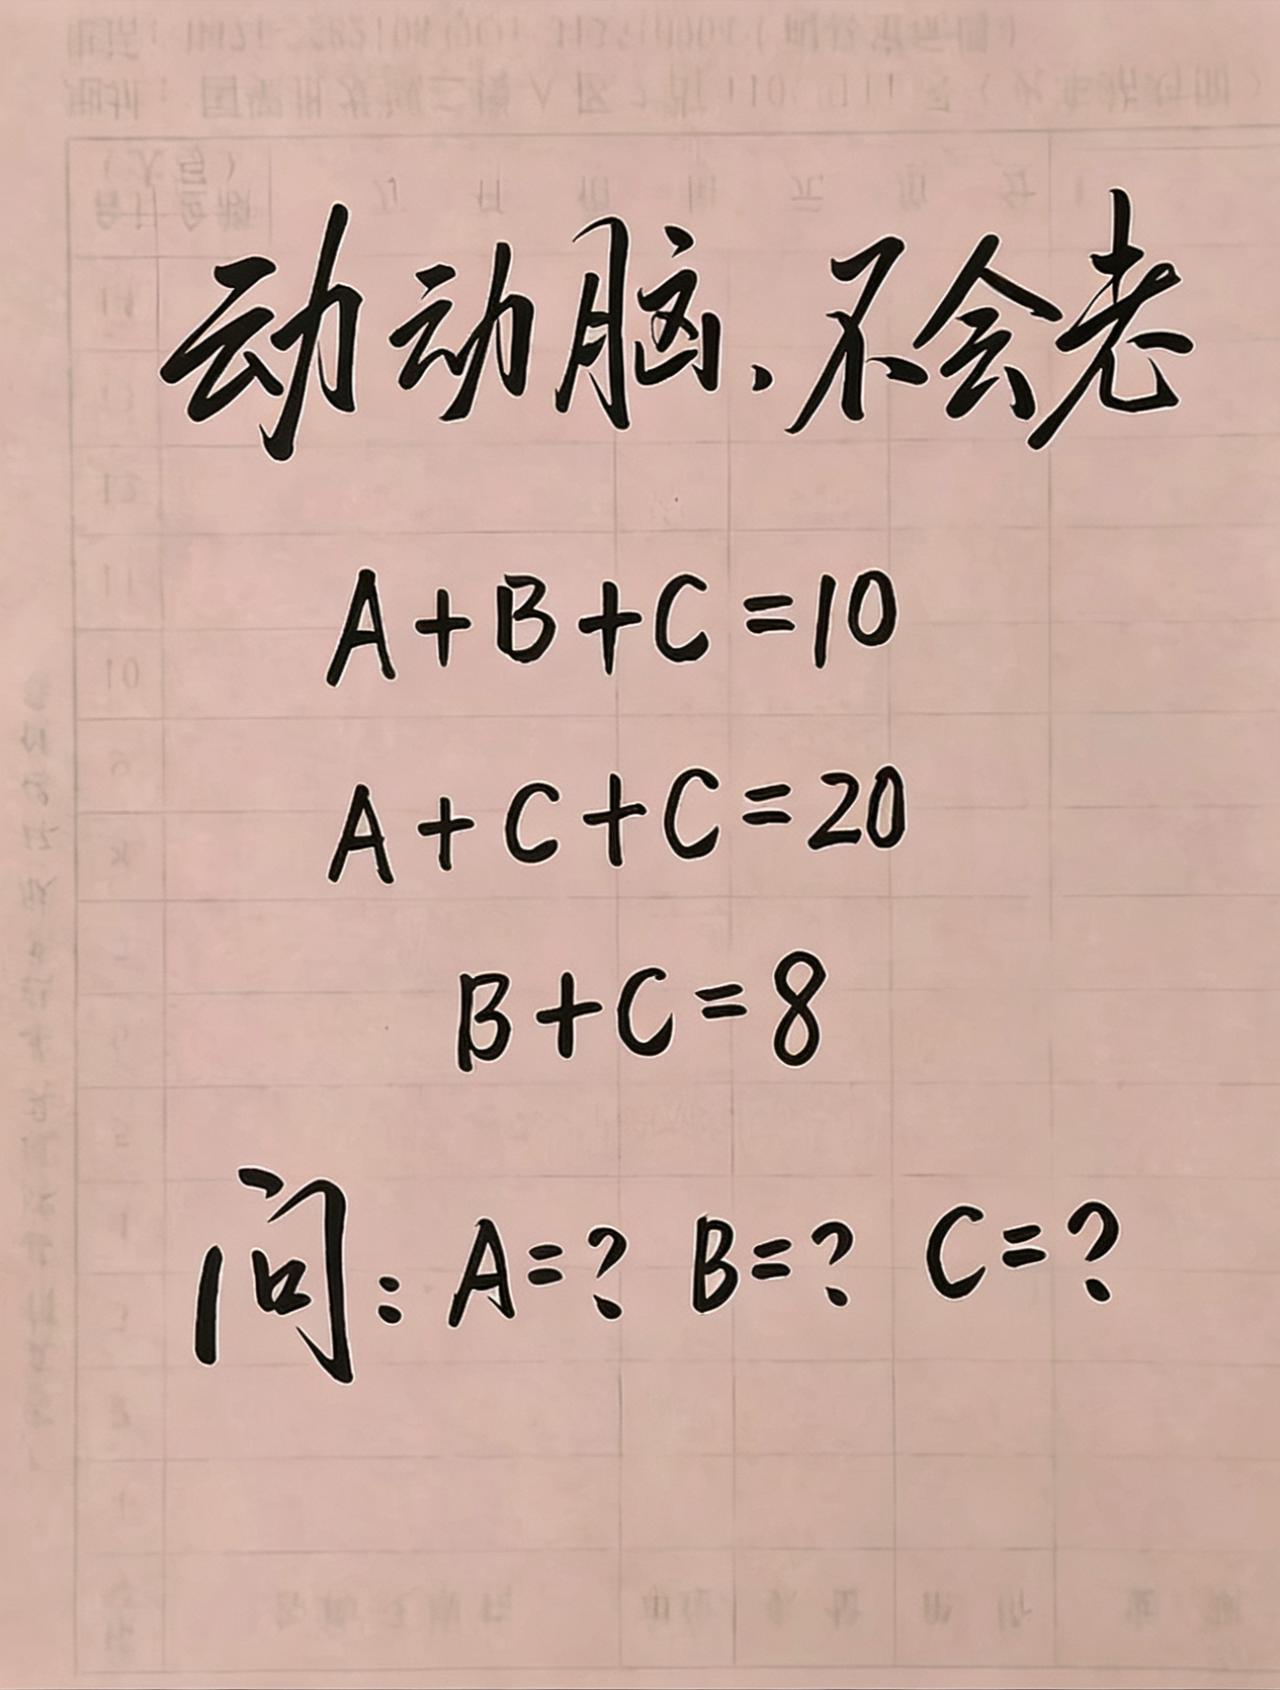 动动脑、不会老
A+B+C=10
A+C+C=20
B+C=8
问：A=? B=? C=?